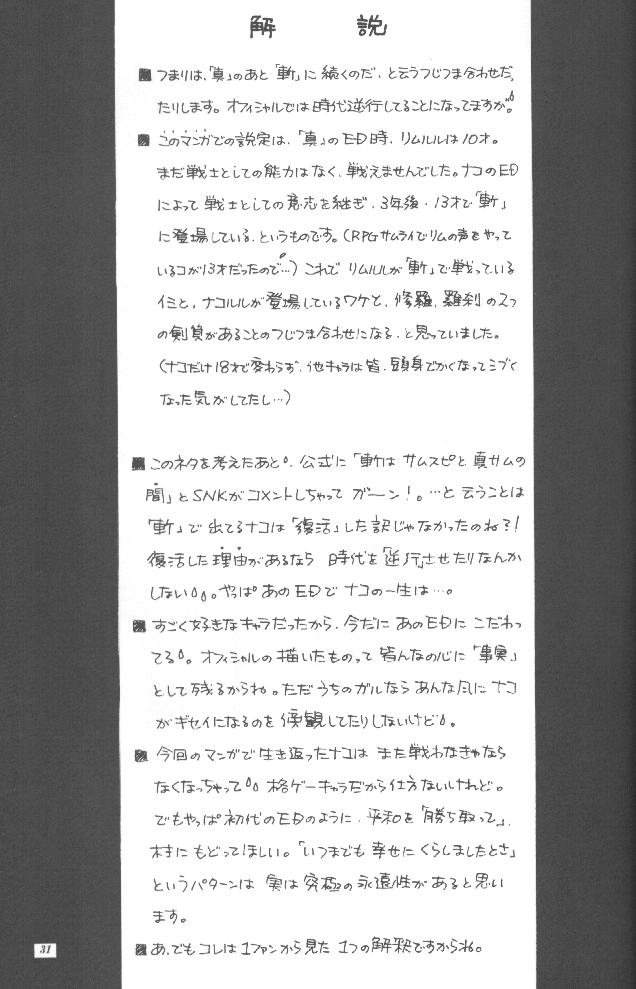 解 説
■つまりは、「真」のあと「斬」に続くのだ、と云うつじつま合わせだ、
たりします。オフィシャルでは時代逆行してることになってますが。
■このマンガでの設定は、「真」のED時、リムルルは10才。
まだ戦士としての能力はなく、戦えませんでした。ナコのED
によって戦士としての意志を継ぎ、3年後・13才で「斬」
に登場している、というものです。(RPGサムライでリムの声をやって
いるコが13才だったので…)これでリムルルが「斬」で戦っている
イミと、ナコルルが登場しているワケと、修羅、羅刹の2つ
の剣質があることのつじつま合わせになる、と思っていました。
(ナコだけ18才で変わらず、他キャラは皆、頭身でかくなってシブく
なった気がしてたし…)
■このネタを考えたあと、公式に「斬はサムスピと真サムの
間」とSNKがコメントしちゃってガーン!。…と云うことは
「斬」で出てるナコは「復活」した訳じゃなかったのね?!
復活した理由があるなら 時代を「逆行」させたりなんか
しない。やっぱあのEDでナコの一生は…。
■すごく好きなキャラだったから、今だにあのEDにこだわっ
てる。オフィシャルの描いたものって皆んなの心に「事実」
として残るからね。ただうちのガルならあんな風にナコ
がギセイになるのを傍観してたりしないけど。
■今回のマンガで生き返ったナコは また戦わなきゃなら
なくなっちゃって 格ゲーキャラだから仕方ないけれど。
でもやっぱ初代のEDのように、平和を「勝ち取って」、
村にもどってほしい。「いつまでも幸せにくらしましたとさ」
というパターンは 実は究極の永遠性があると思い
ます。
■あ、でもコレは1ファンから見た 1つの解釈ですからね。
31